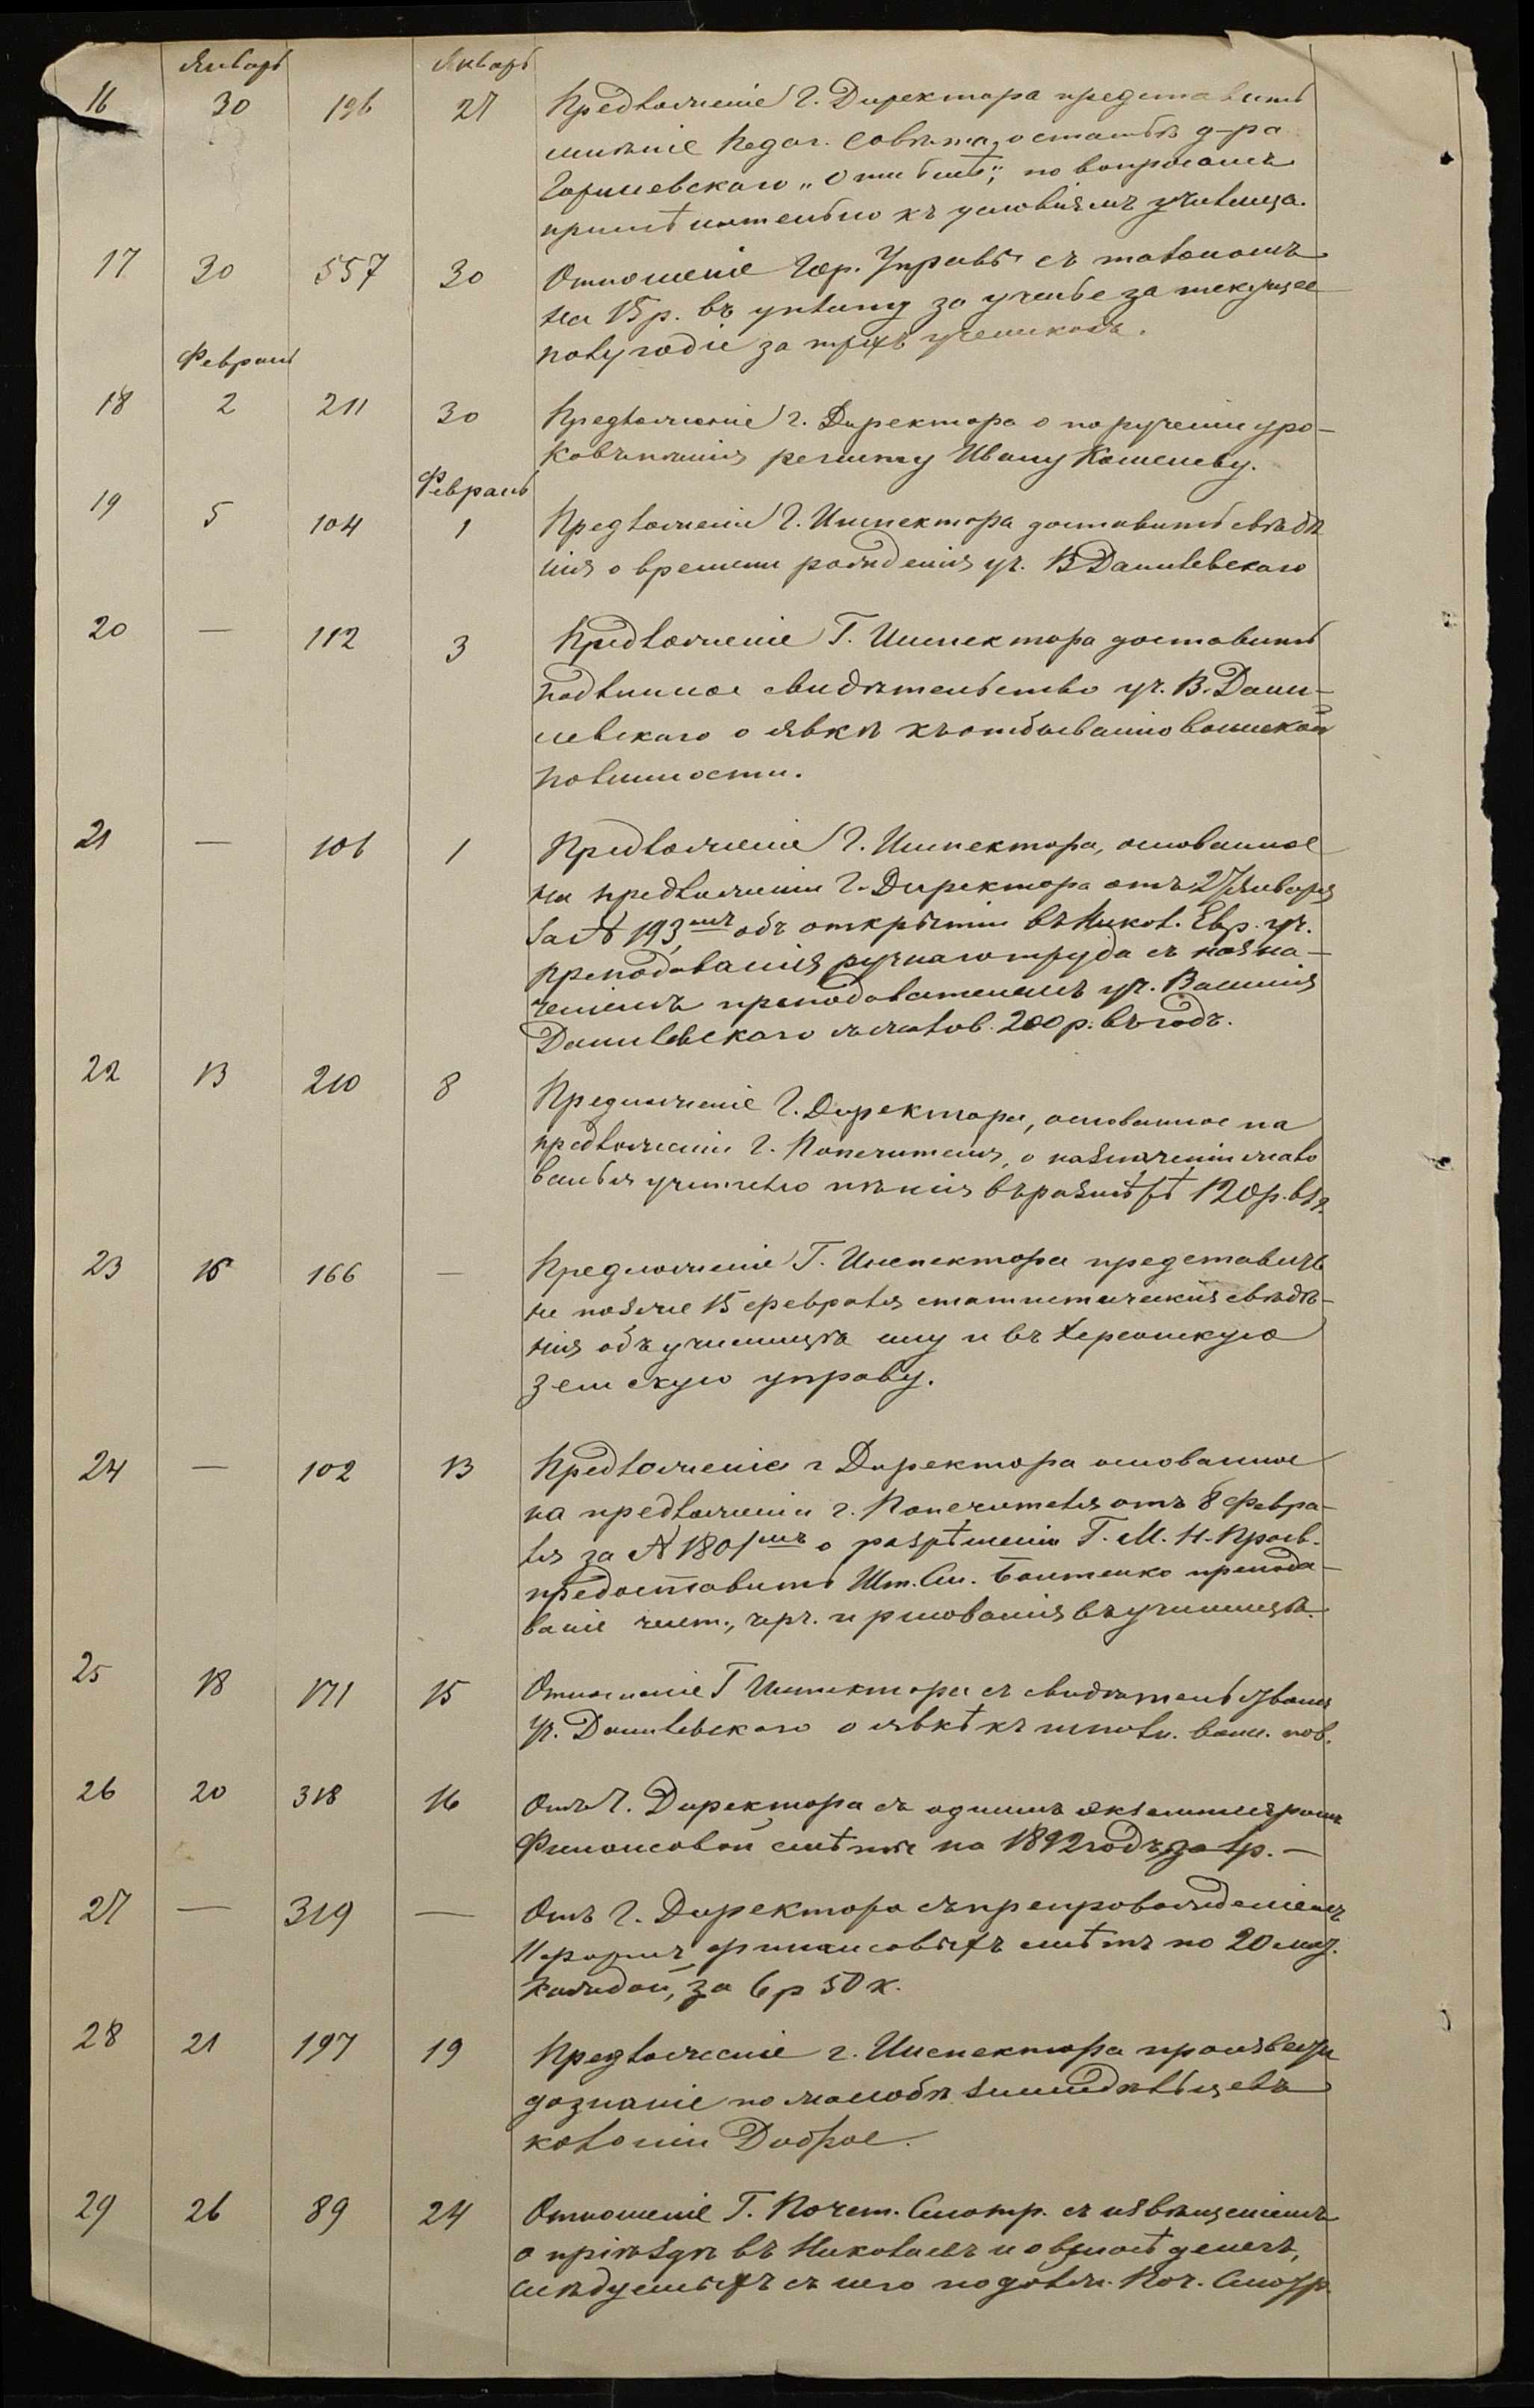 Январь Январь
16 30 196 27 Предложеніе Г. Директора представить
мнѣніе Педаг. Совѣта, о статьѣ д-ра
по вопросамъ
примѣнительно къ условіямъ училища.
17 30 557 30 Отношеніе Гор. Управы съ талономъ
на 15 р. въ уплату за ученье за текущее
полугодіе за трехъ учениковъ.
Февраль
18 2 211 30 Предложеніе г. Директора о порученіи уро-
ковъ пѣнія регенту Ивану Кошелеву.
Февраль
19 5 104 1 Предложеніе Г. Инспектора доставить свѣдѣ
нія о времени рожденія уч. В Данилевскаго
20 — 112 3 Предложеніе Г. Инспектора доставить
подлинное свидѣтельство уч. В. Дани-
левскаго о явкѣ къ отбыванію воинской
повинности.
21 — 106 1 Предложеніе Г. Инспектора, основанное
на предложеніи Г. Директора отъ 27 Января
за № 193, объ открытіи въ Никол. Евр. уч.
преподаванія ручнаго труда съ назна-
ченіемъ преподавателемъ уч.
Данилевскаго съ жалов. 200 р. въ годъ.
22 13 210 8 Предложеніе Г. Директора, основанное на
предложеніи Г. Попечителя, о назначеніи жало
ванья учителю пѣнія въ размѣрѣ 120 р. въ г.
23 15 166 — Предложеніе Г. Инспектора представить
не позже 15 февраля статистическія свѣдѣ-
нія объ училищѣ ему и въ Херсонскую
земскую управу.
24 — 102 13 Предложеніе г Директора основанное
на предложеніи г. Попечителя отъ 8 Февра-
ля за № 1801 о разрѣшеніи Г. М. Н. Просв.
предоставить Шт. См. преподa-
ваніе чист., чрч. и рисованія въ училищѣ.
25 18 171 15 Отношеніе Г Инспектора съ свидѣтельствомъ
Уч. Данилевскаго о явкѣ къ исполн. воин. пов.
26 20 318 16 Отъ Г. Директора съ однимъ экземпляромъ
Финансовой смѣты на 1892 годъ, за 1 р. —
27 — 319 — Отъ Г. Директора съ препровожденіемъ
финансовыхъ смѣтъ по 20 экз.
каждой, за 6 р 50 к.
28 21 197 19 Предложеніе г. Инспектора произвести
дознаніе по жалобѣ земледѣльцевъ
колоніи Доброе.
29 26 89 24 Отношеніе Г. Почет. Смотр. съ извѣщеніемъ
о пріѣздѣ въ Николаевъ и о взносѣ денегъ,
слѣдуемыхъ съ него по долж. Поч. Смотр.